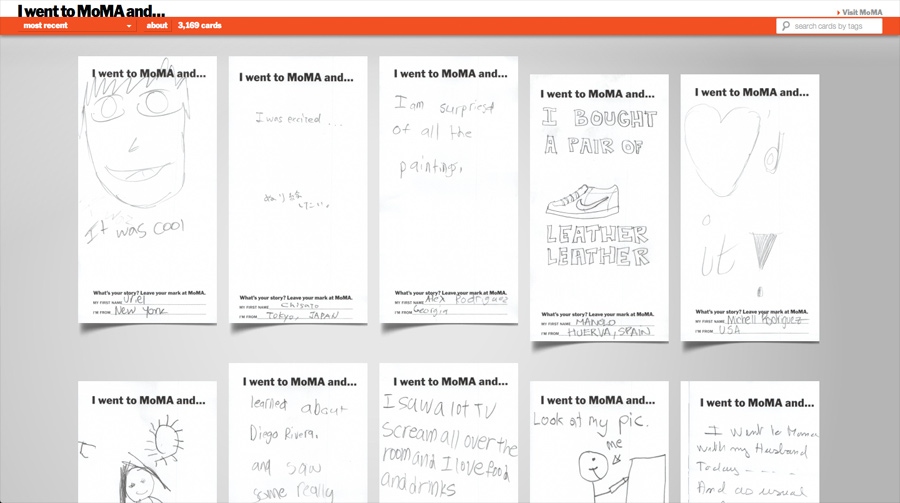 I went to MoMA and...
Visit MoMA
most recent
about
3,169 cards
search cards by tags
I went to MoMA and...
It was cool
What's your story? Leave your mark at MoMA.
MY FIRST NAME Uriel
I'M FROM New York
I went to MoMA and...
I was excited ...
What's your story? Leave your mark at MoMA.
MY FIRST NAME Chisato
I'M FROM TOKYO, JAPAN
I went to MoMA and...
I am surpriest
of all the
paintings.
What's your story? Leave your mark at MoMA.
MY FIRST NAME Alex Rodriguez
I'M FROM Georgia
I went to MoMA and...
I BOUGHT
A PAIR OF
LEATHER
LEATHER
What's your story? Leave your mark at MoMA.
MY FIRST NAME MANOLO
I'M FROM HUERVA, SPAIN
I went to MoMA and...
d
it
What's your story? Leave your mark at MoMA.
MY FIRST NAME Michell Rodriguez
I'M FROM USA
I went to MoMA and...
I went to MoMA and...
learned about
Diego Rivera,
and saw
some really
I went to MoMA and...
I saw a lot TV
scream all over the
room and I love food
and drinks
I went to MoMA and...
Look at my pic.
me
I went to MoMA and...
I went to Moma
with my Husband
Today - - - -
And as usual